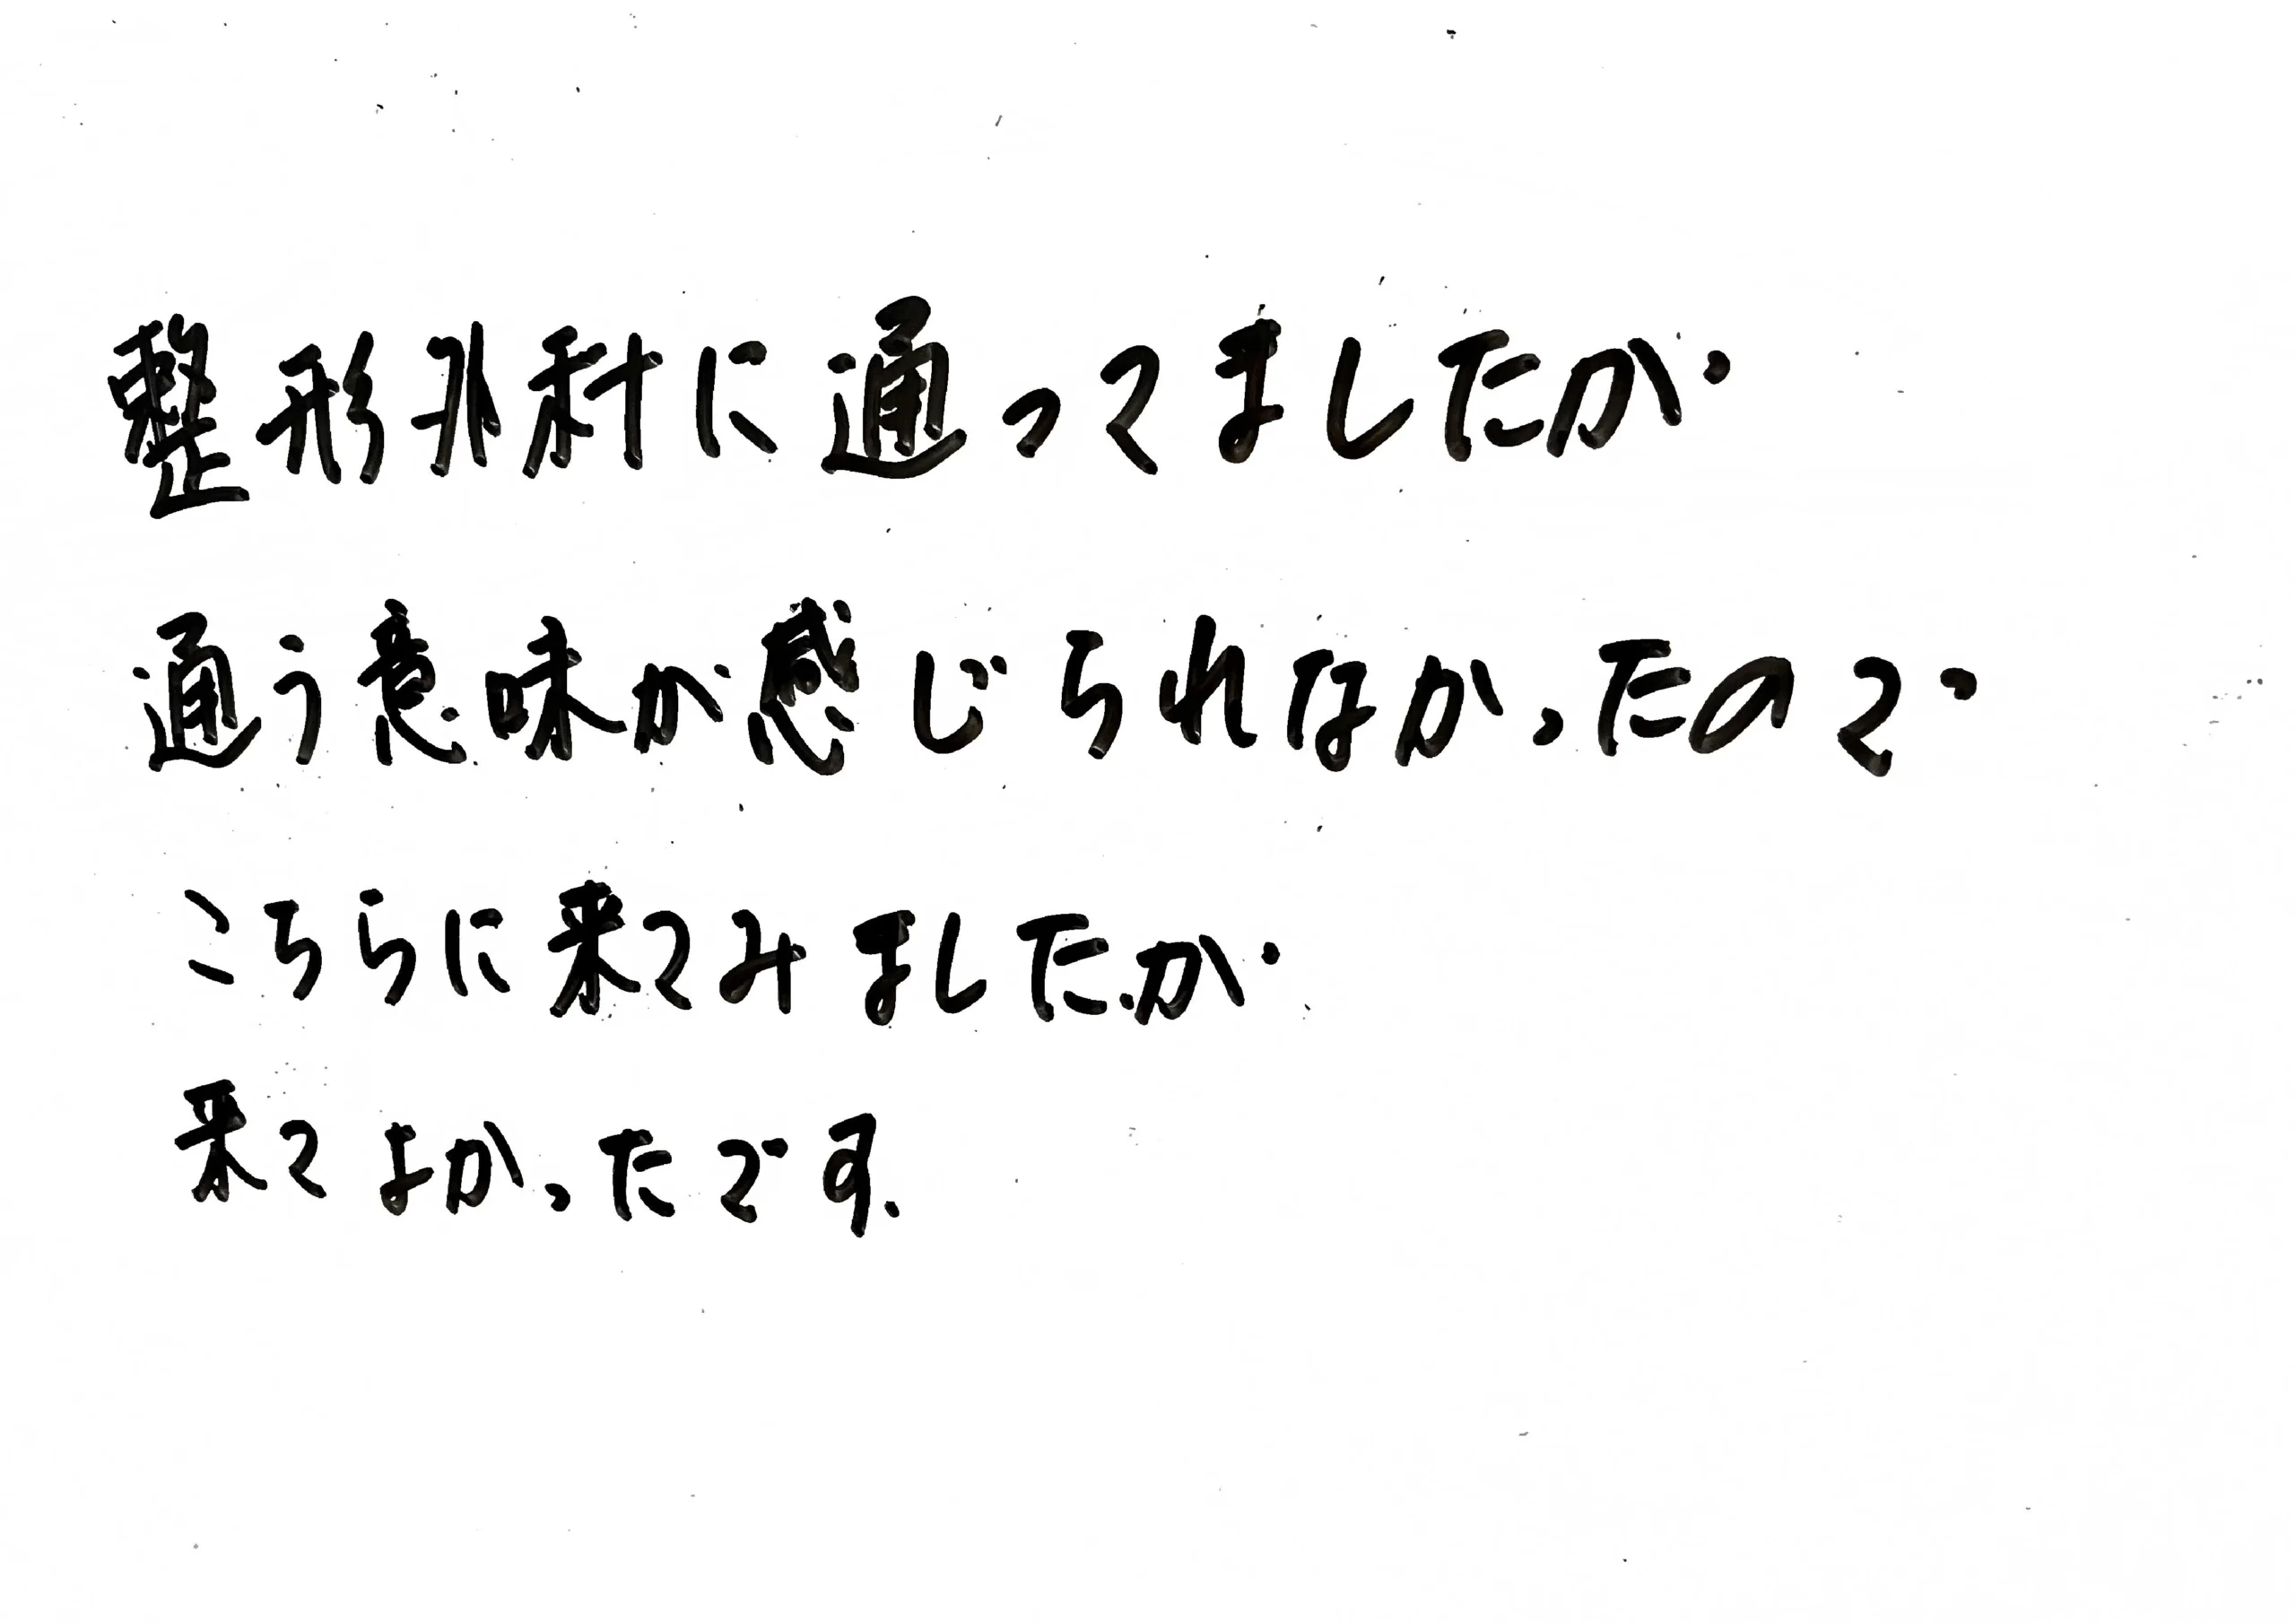 整形外科に通ってましたが
通う意味が感じられなかったので
こちらに来てみましたが
来てよかったです.